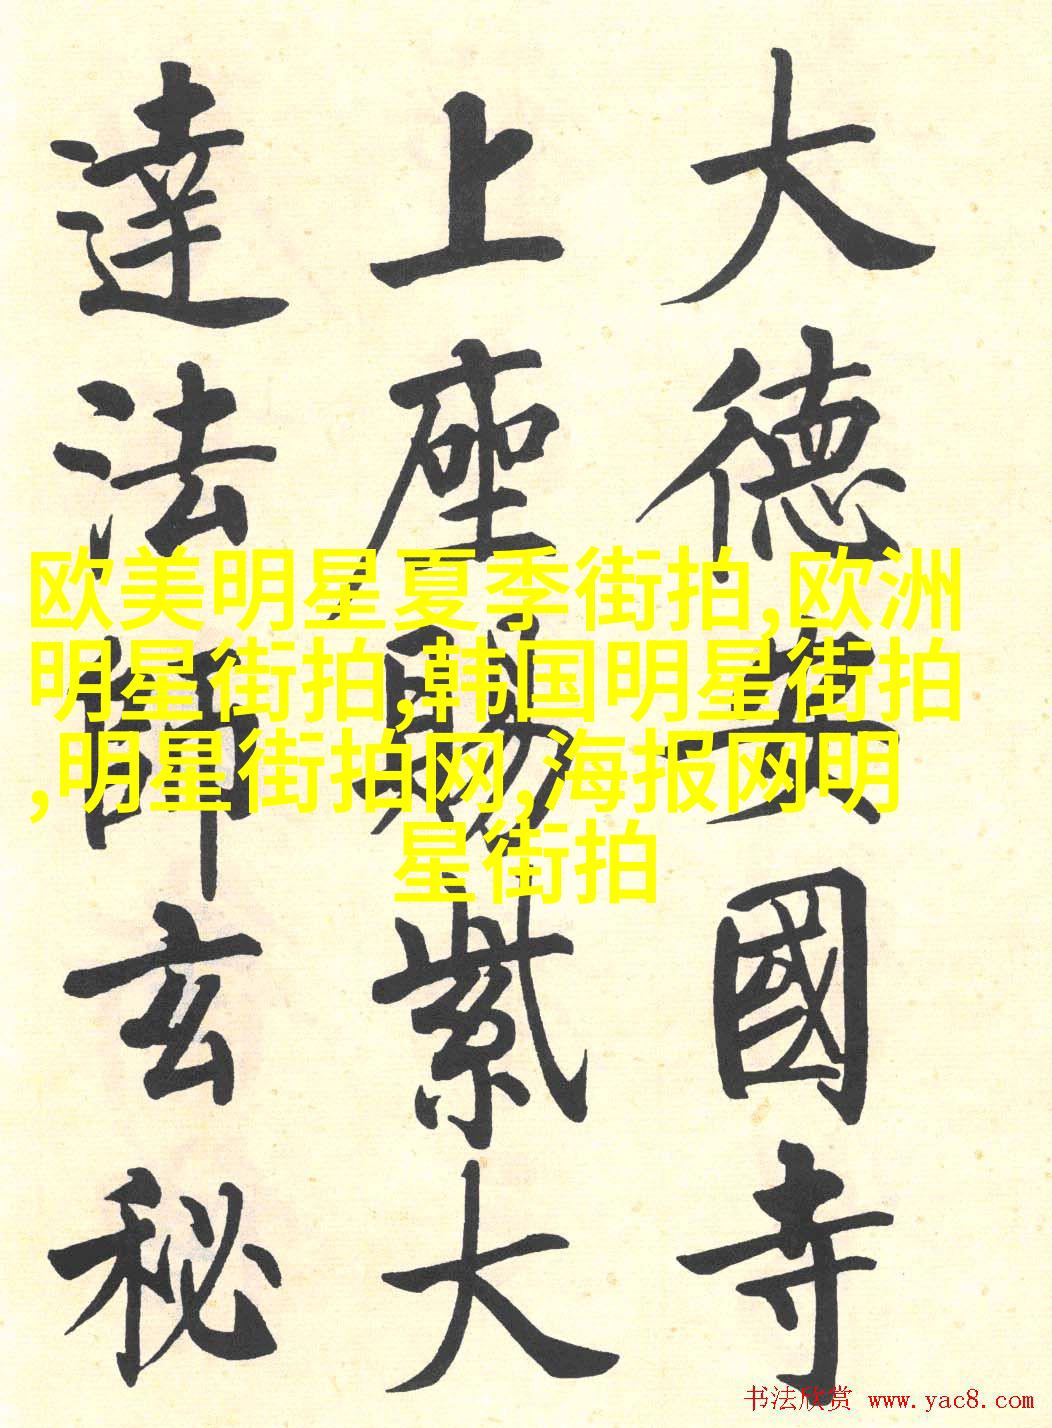 大德安國寺
上座賜紫大
達法師玄秘
欧美明星夏季街拍,欧洲
明星街拍,韩国明星街拍
,明星街拍网,海报网明
星街拍
书法欣赏 www.yac8.com